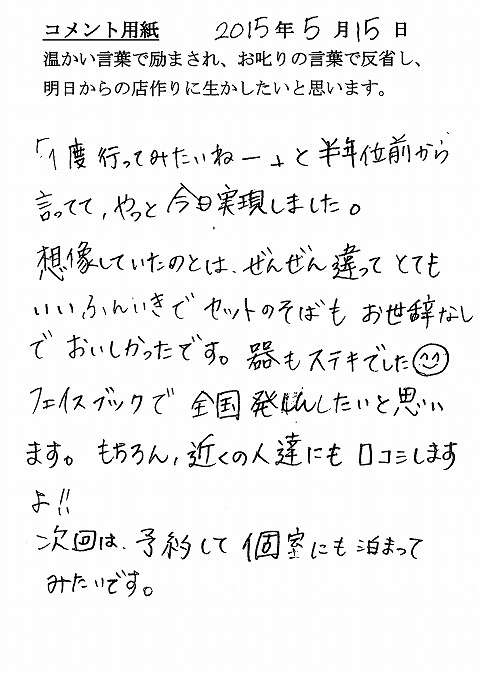 コメント用紙 2015年5月15日
温かい言葉で励まされ、お叱りの言葉で反省し、
明日からの店作りに生かしたいと思います。
「1度行ってみたいねー」と半年位前から
言ってて、やっと今日実現しました。
想像していたのとは、ぜんぜん違ってとても
いいふんいきでセットのそばもお世辞なし
でおいしかったです。器もステキでした
フェイスブックで全国発したいと思い
ます。もちろん、近くの人達にも口コミします
よ!!
次回は、予約して個室にも泊まって
みたいです。